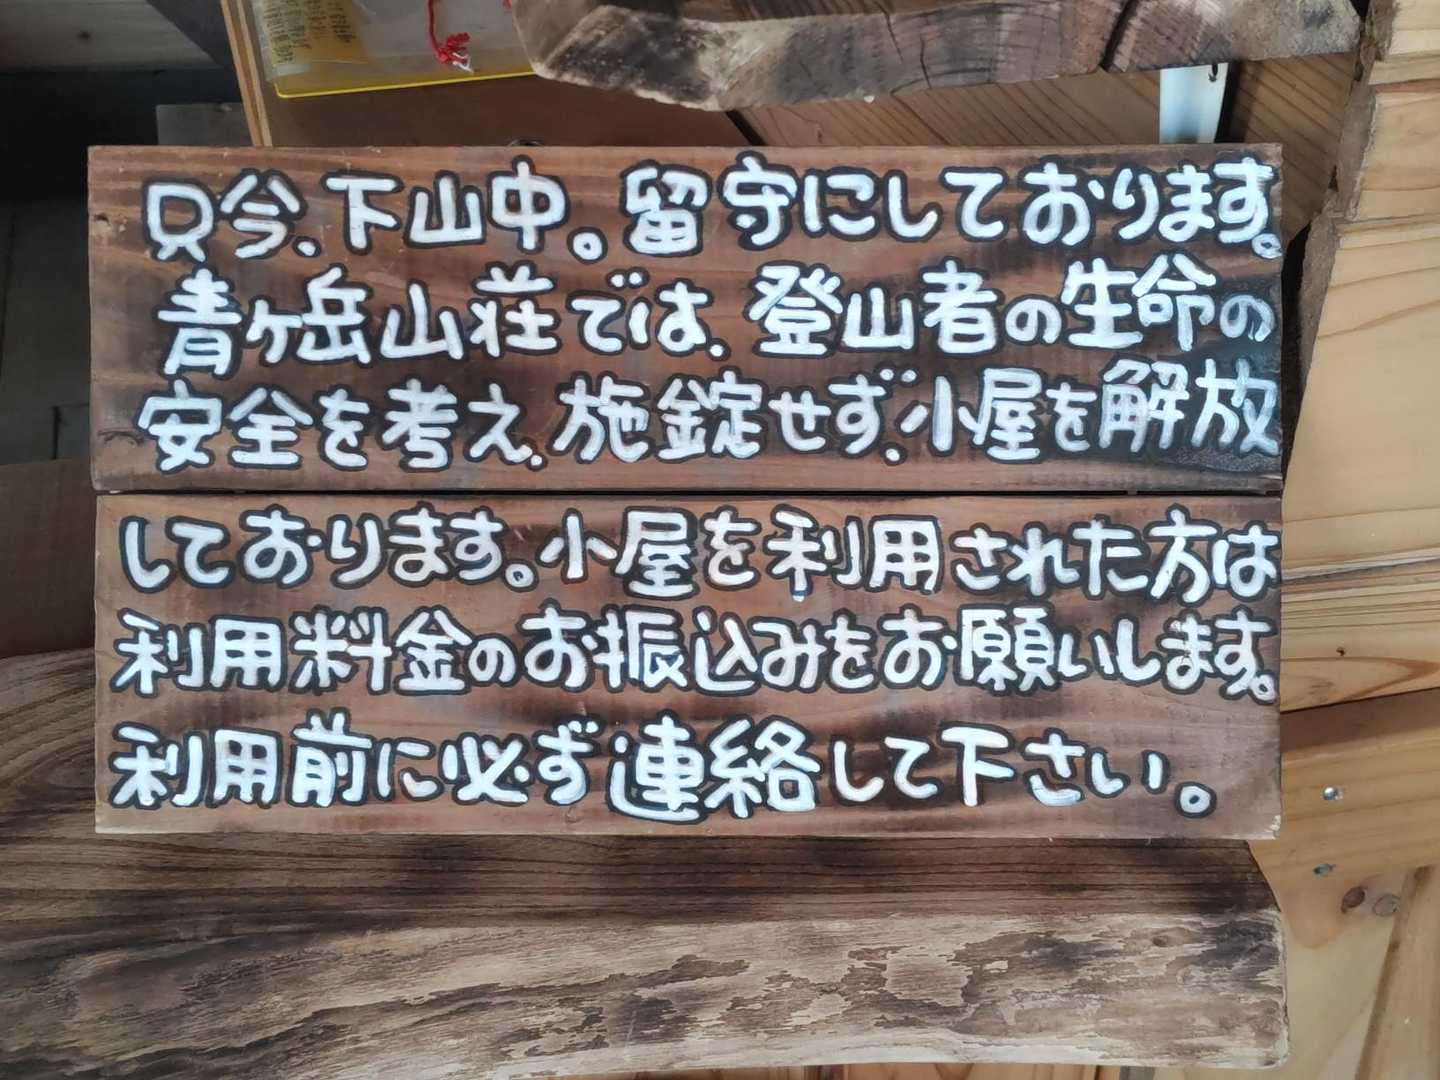 只今、下山中。留守にしております。
青ヶ岳山荘では、登山者の生命の
安全を考え、施錠せず、小屋を解放
しております。小屋を利用された方は
利用料金のお振込みをお願いします。
利用前に必ず連絡して下さい。